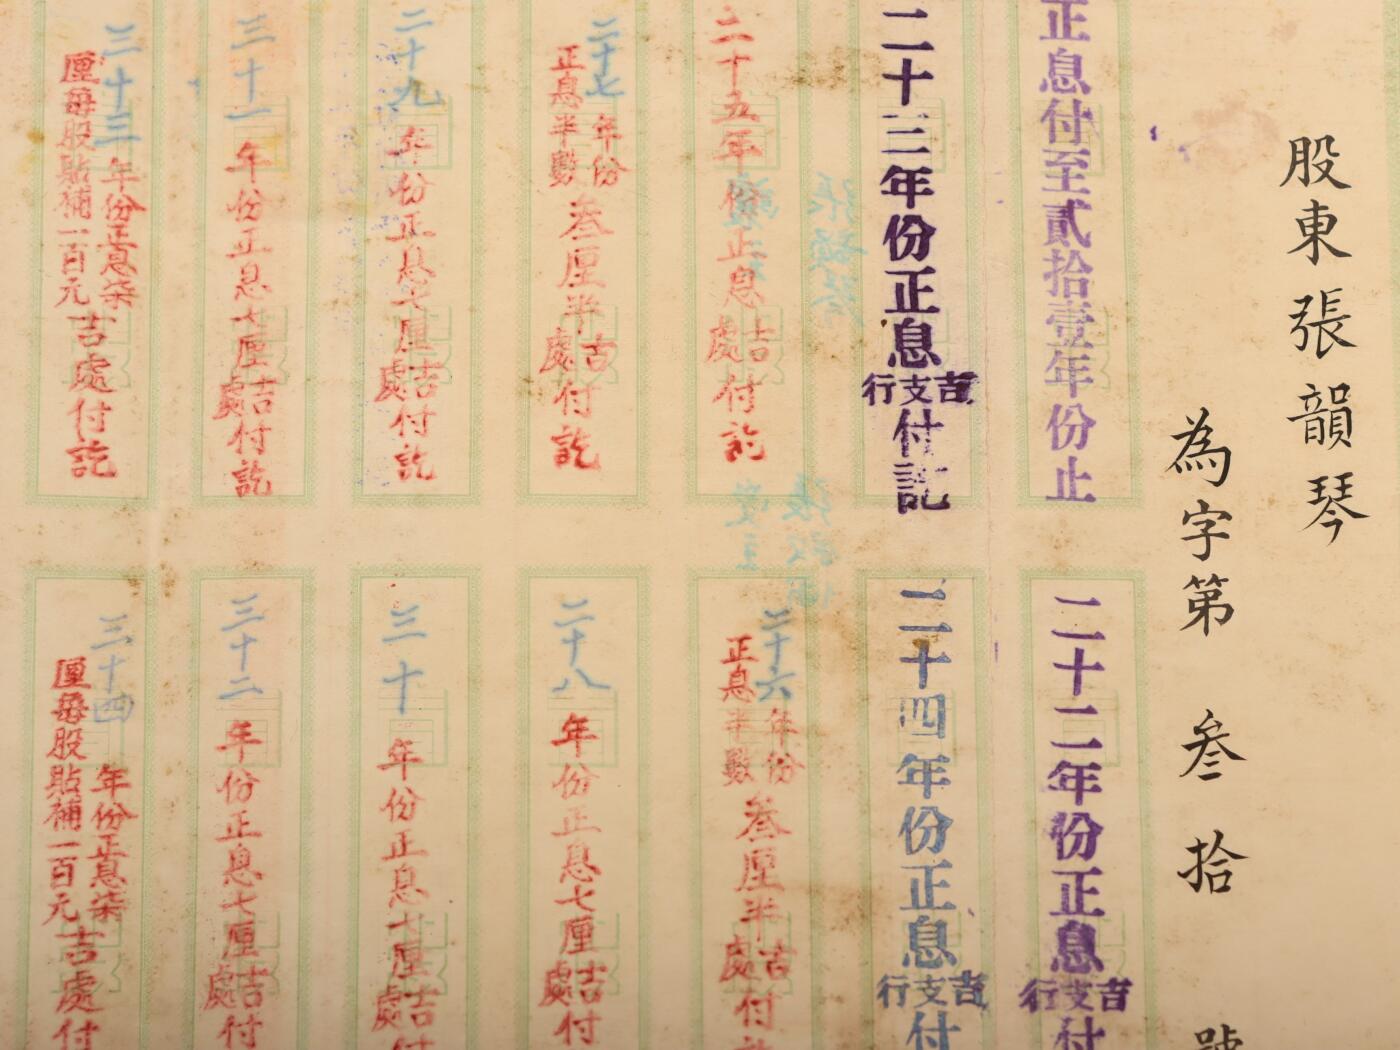 股東張韻琴
為字第叁拾號
正息付至貳拾壹年份止
二十二年份正息吉支行付
二十三年份正息吉支行付訖
二十四年份正息吉支行付
二十五年份正息吉處付訖
二十六年份正息半數叁厘半吉處付
二十七年份正息半數叁厘半吉處付訖
二十八年份正息七厘吉處付
二十九年份正息七厘吉處付訖
三十年份正息七厘吉處付
三十一年份正息七厘吉處付訖
三十二年份正息七厘吉處付
三十三年份正息柒厘每股貼補一百元吉處付訖
三十四年份正息柒厘每股貼補一百元吉處付